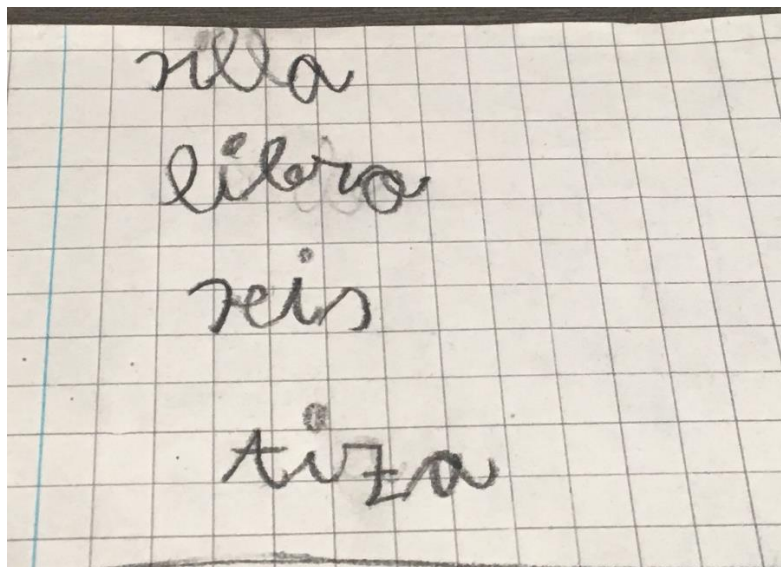 silla
libro
seis
tiza